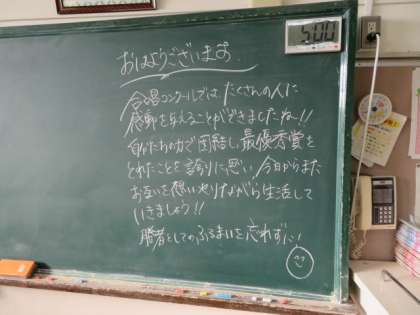 おはようございます
合唱コンクールでは、たくさんの人に
感動を与えることができましたね!!
自分たちの力で団結し、最優秀賞を
とれたことを誇りに思い、今日からまた
お互いを思いやりながら生活して
いきましょう!!
勝者としてのふるまいを忘れずに!
5:00